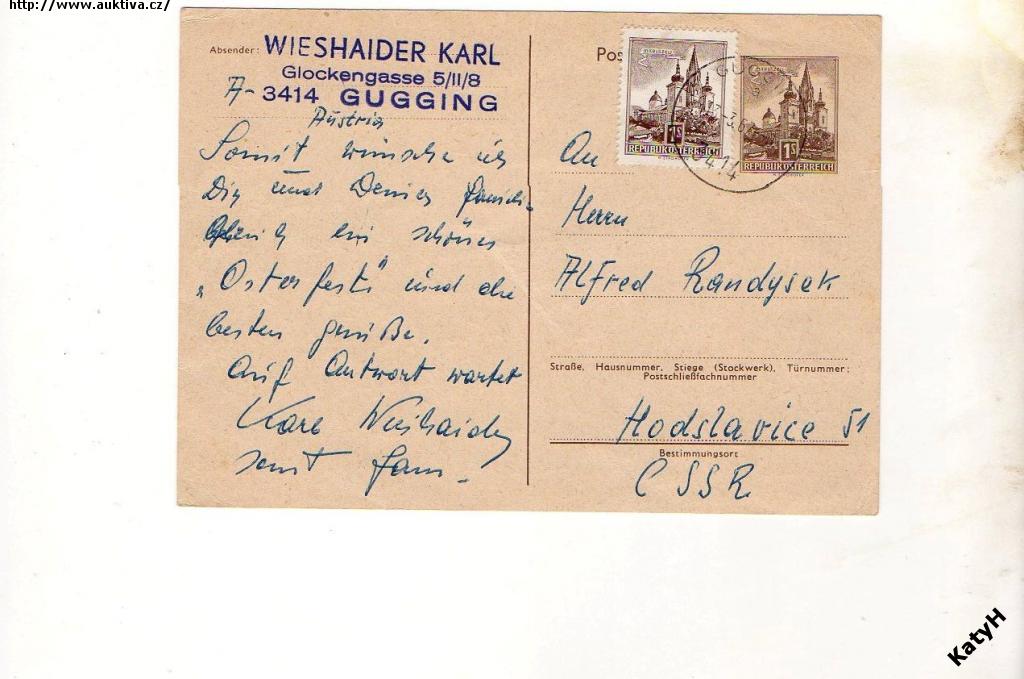 http://www.auktiva.cz/
Absender: WIESHAIDER KARL
Glockengasse 5/II/8
A- 3414 GUGGING
Austria
Somit wünsche ich
Dir und Deiner Famili-
ein schönes
„Osterfest" und die
besten grüße.
Auf Antwort wartet
Karl Wieshaider
samt Fam.
Pos
1S
REPUBLIK ÖSTERREICH
1S
REPUBLIK ÖSTERREICH
GUGG
3414
An
Herrn
Alfred Randysek
Straße, Hausnummer, Stiege (Stockwerk), Türnummer;
Postschließfachnummer
Hodslavice 51
Bestimmungsort
CSSR
KatyH